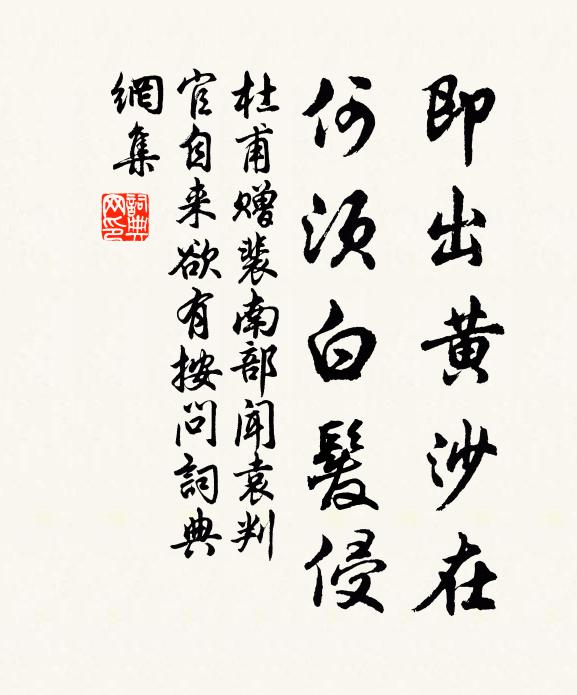 即出黄沙在
何须白髮侵
杜甫赠裴南部闻袁判
官自来欲有按问詞典
網集
詞典
网印